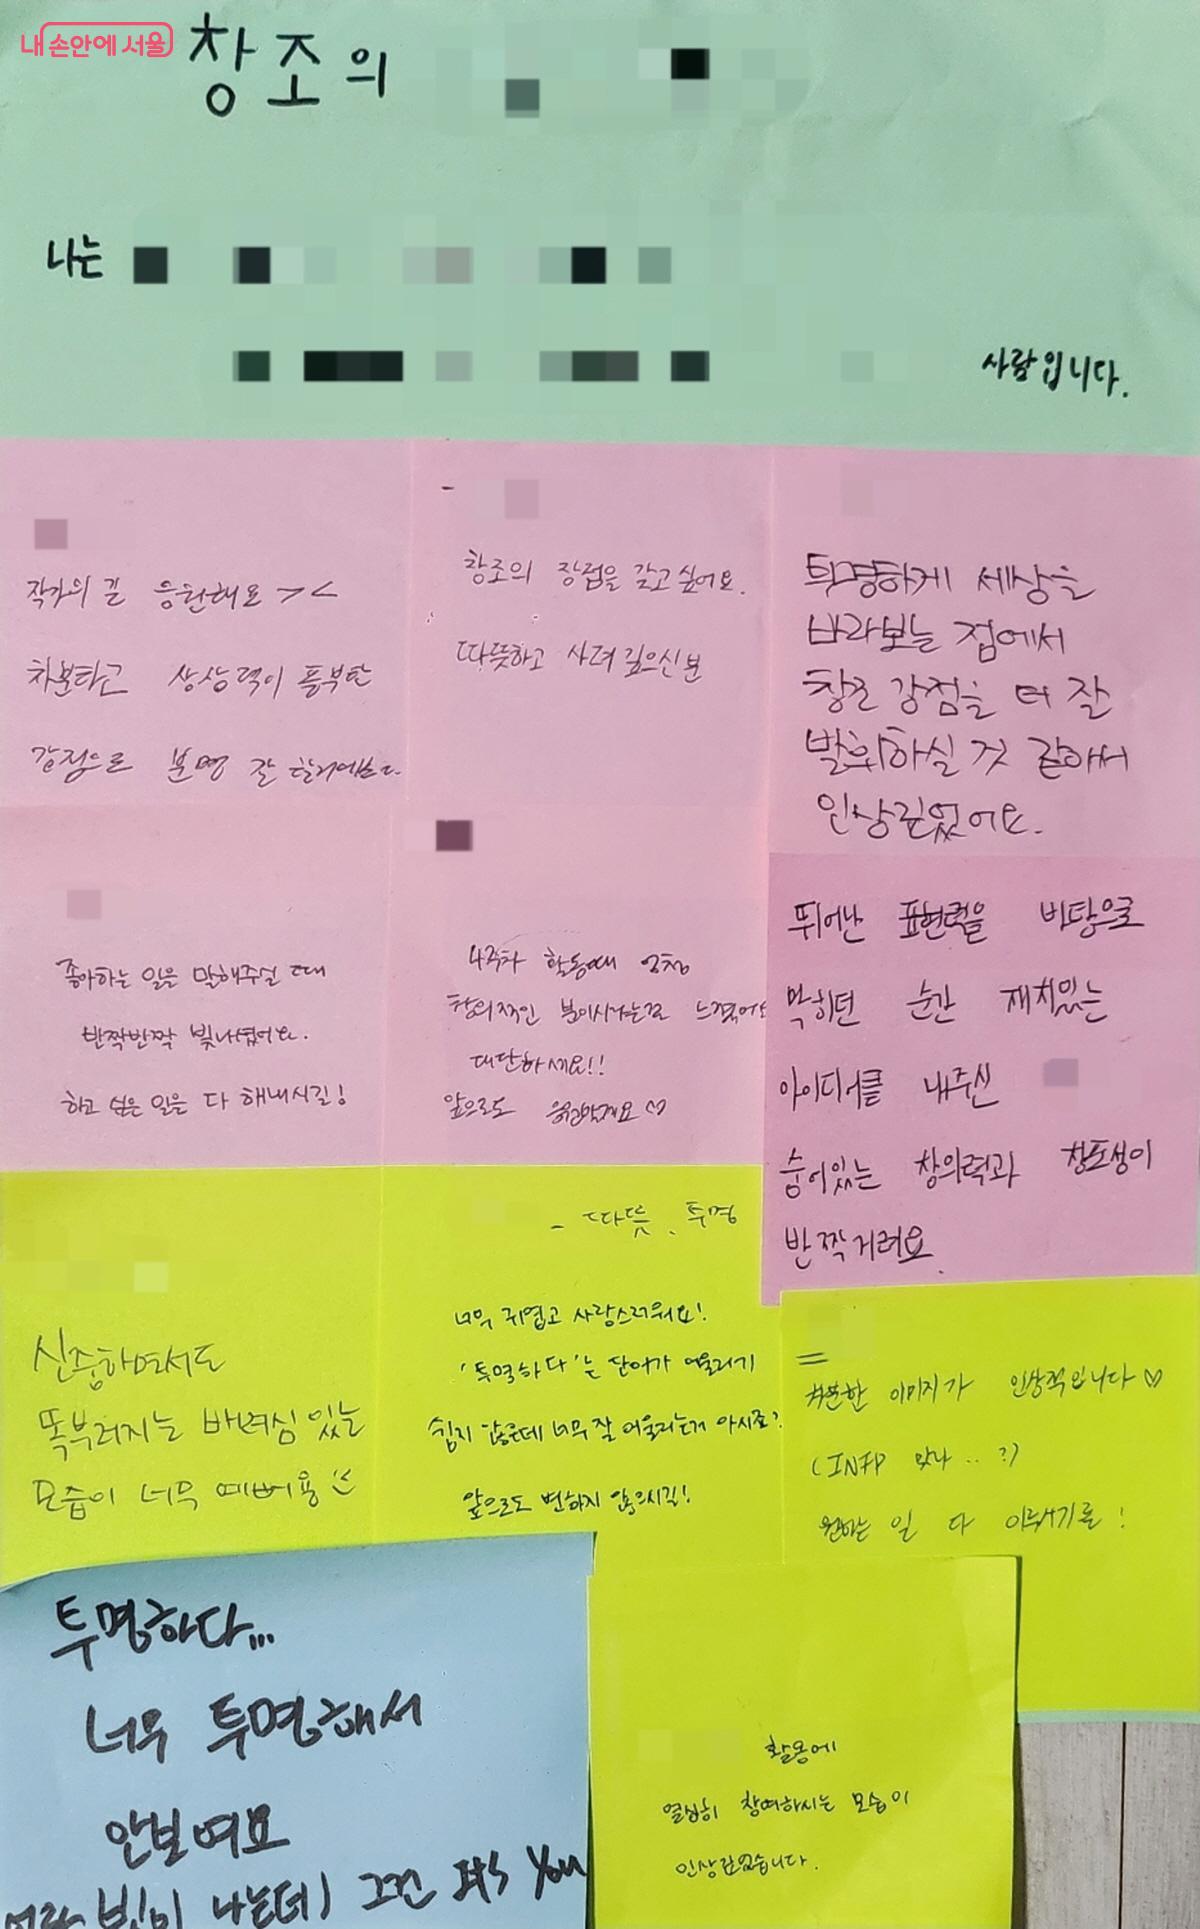 내 손안에 서울
창조의
나는
사람입니다.
작가의 길 응원해요 ><
차분하고 상상력이 풍부한
강점으로 분명 잘 할거예요.
창조의 장점을 갖고 싶어요.
따뜻하고 사려 깊으신 분
투명하게 세상을
바라보는 점에서
창조 강점을 더 잘
발휘하실 것 같아서
인상깊었어요.
좋아하는 일을 말해주실 때
반짝반짝 빛나셨어요.
하고 싶은 일을 다 해내시길!
4주차 활동때 엄청
창의적인 분이시라는걸 느꼈어요
대단하세요!!
앞으로도 응원할게요 ♡
뛰어난 표현력을 바탕으로
막히던 순간 재치있는
아이디어를 내주신
숨어있는 창의력과 창조성이
반짝거려요.
신중하면서도
똑부러지는 배려심 있는
모습이 너무 예뻐용
- 따뜻, 투명
너무 귀엽고 사랑스러워요!
'투명하다'는 단어가 어울리기
쉽지 않은데 너무 잘 어울리는거 아시죠?
앞으로도 변하지 않으시길!
차분한 이미지가 인상적입니다 ♡
(INFP 맞나..?)
원하는 일 다 이루시기를!
투명하다...
너무 투명해서
안보여요
빛이 나는데) 그건 It's You
활동에
열심히 참여하시는 모습이
인상깊었습니다.